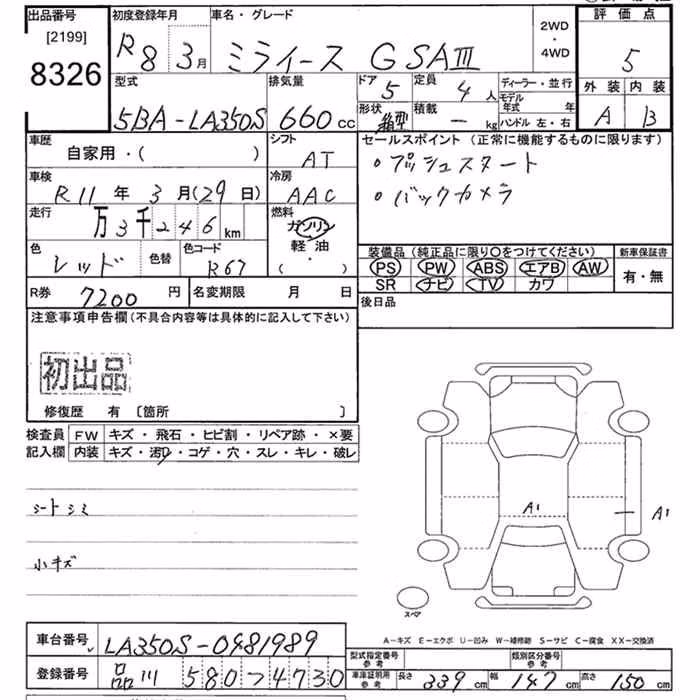 出品番号 初度登録年月 車名・グレード 2WD・4WD 評価点
[2199] R8 3月 ミライース G SAⅢ 5
8326 型式 排気量 ドア 5 定員 4人 ディーラー・並行 外装 内装
5BA-LA350S 660cc 形状 箱型 積載 — kg モデル年式 年 ハンドル 左・右 A B
車歴 自家用・( ) シフト AT セールスポイント (正常に機能するものに限ります)
車検 R11年3月(29日) 冷房 AAC ・プッシュスタート
・バックカメラ
走行 万3千246km 燃料 ガソリン 軽油 (・)
色 レッド 色替 色コード R67 装備品 (純正品に限り○をつけてください) 新車保証書
PS PW ABS エアB AW 有・無
SR ナビ TV カワ
R券 7200円 名変期限 月 日 後日品
注意事項申告欄(不具合内容等は具体的に記入して下さい)
初出品
修復歴 有 〔箇所 〕
検査員 FW キズ・飛石・ヒビ割・リペア跡・×要
記入欄 内装 キズ・汚・コゲ・穴・スレ・キレ・破レ
シートシミ
A1 A1
小キズ
スペア
A-キズ E-エクボ U-凹み W-補修跡 S-サビ C-腐食 XX-交換済
車台番号 LA350S-0981989
型式指定番号 参考 類別区分番号 参考
登録番号 品川 580 ワ 4730
車庫証明用 参考 長さ 339cm 幅 147cm 高さ 150cm